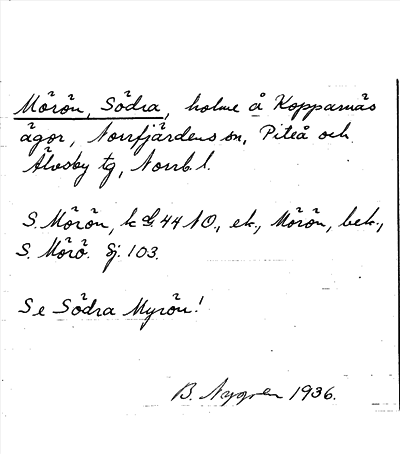 Mörön, Södra, holme å Kopparnäs
ägor, Norrfjärdens sn, Piteå och
Älvsby tg, Norrb. l.
S. Mörön, k bl. 44 NO., ek., Mörön, bek.,
S. Mörö. Sj. 103.
Se Södra Myrön!
B. Nygren 1936.